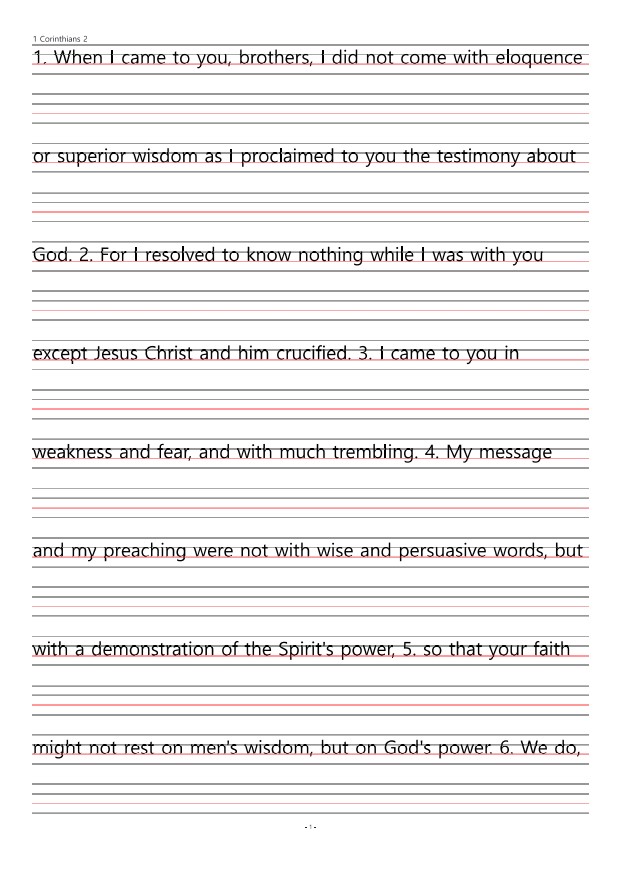 1 Corinthians 2
1. When I came to you, brothers, I did not come with eloquence
or superior wisdom as I proclaimed to you the testimony about
God. 2. For I resolved to know nothing while I was with you
except Jesus Christ and him crucified. 3. I came to you in
weakness and fear, and with much trembling. 4. My message
and my preaching were not with wise and persuasive words, but
with a demonstration of the Spirit's power, 5. so that your faith
might not rest on men's wisdom, but on God's power. 6. We do,
- 1 -